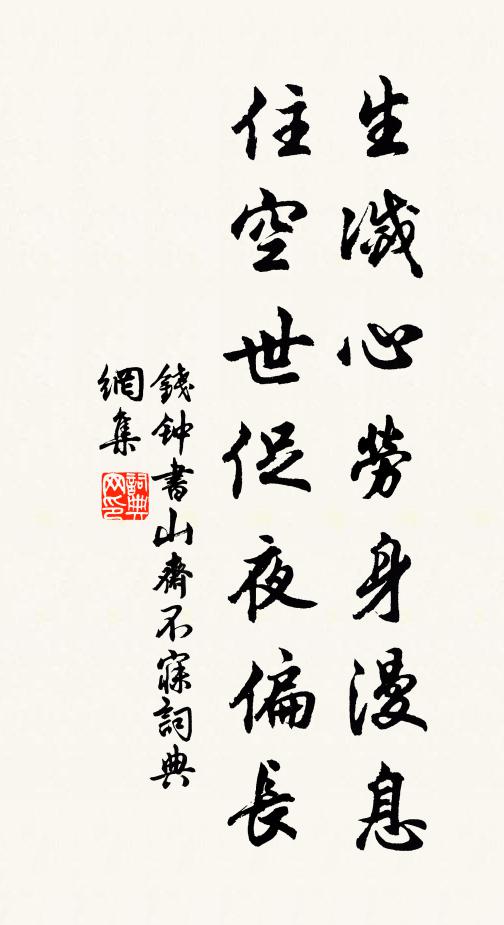 生滅心勞身漫息
住空世促夜偏長
錢钟書山齋不寐詞典
網集
詞典
网印